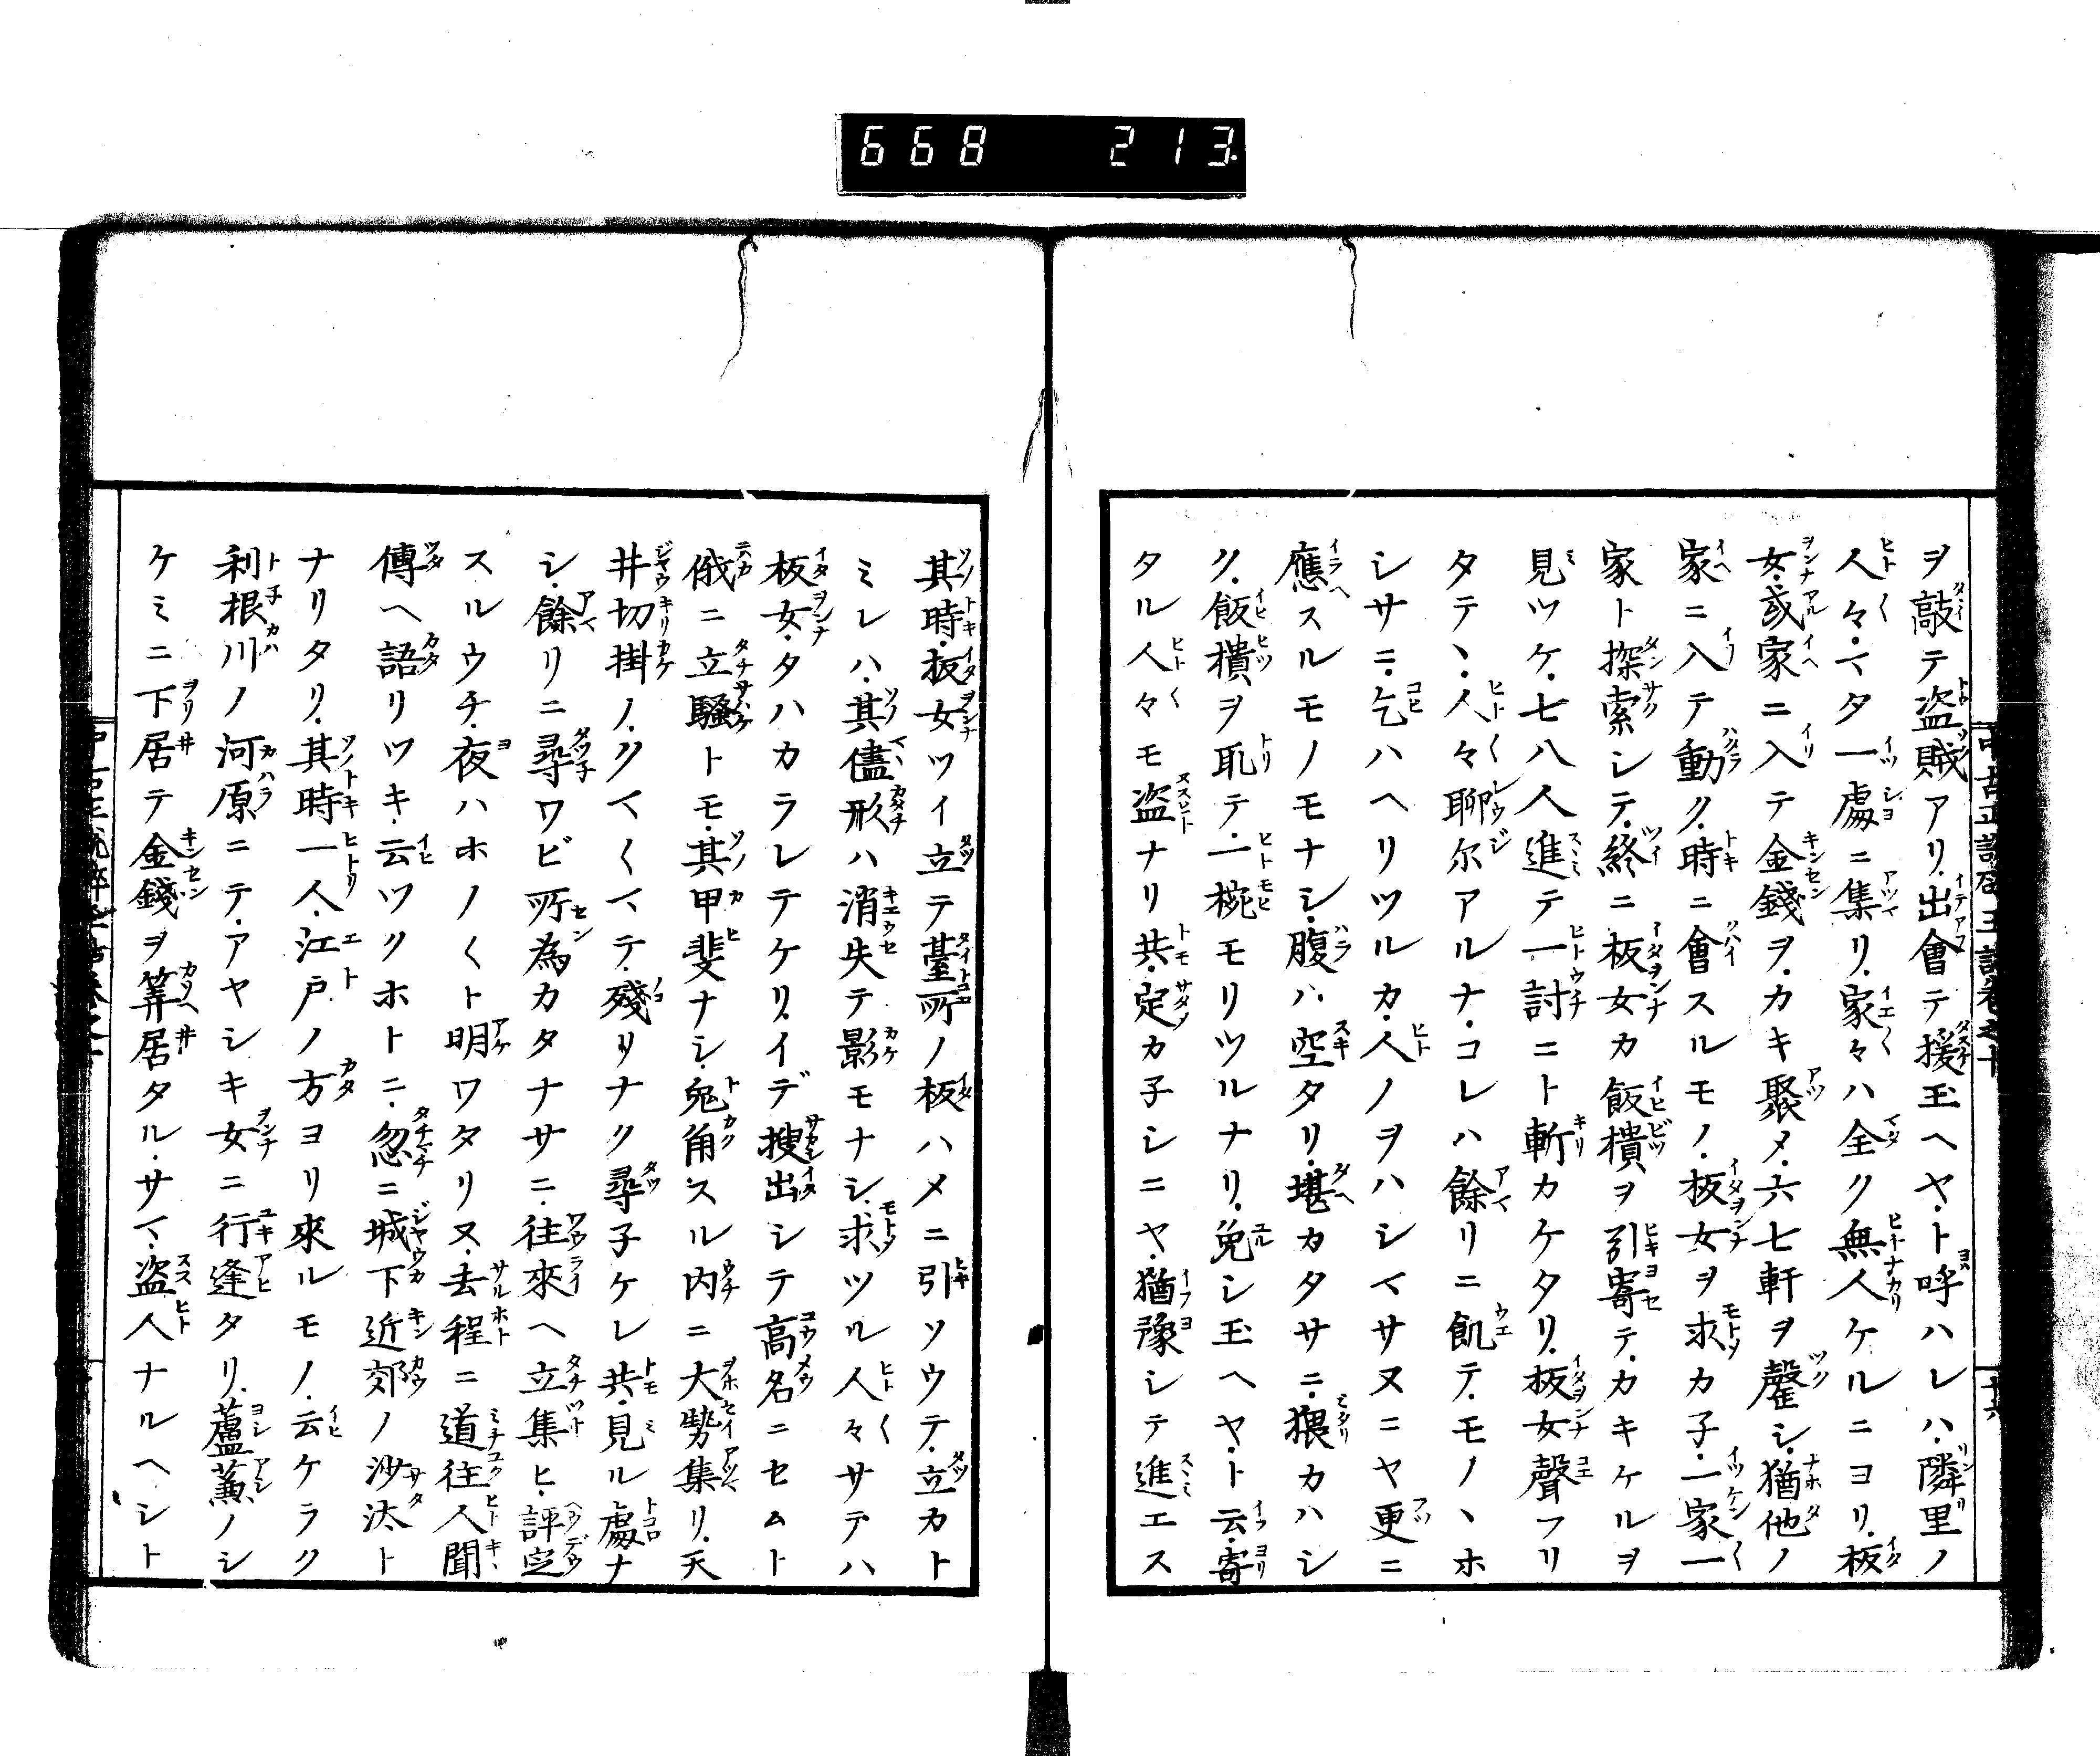 668 213
ヲ敲テ盗賊アリ出會テ援玉ヘヤト呼ハレハ隣里ノ
人々マタ一處ニ集リ家々ハ全ク無人ケルニヨリ板
女或家ニ入テ金錢ヲカキ聚メ六七軒ヲ罄シ猶他ノ
家ニ入テ動ク時ニ會スルモノ板女ヲ求カ子一家一
家ト探索シテ終ニ板女カ飯櫃ヲ引寄テカキケルヲ
見ツケ七八人進テ一討ニト斬カケタリ板女聲フリ
タテヽ人々聊尓アルナコレハ餘リニ飢テモノヽホ
シサニ乞ハヘリツルカ人ノヲハシマサヌニヤ更ニ
應スルモノモナシ腹ハ空タリ堪カタサニ猥カハシ
ク飯櫃ヲ取テ一椀モリツルナリ免シ玉ヘヤト云寄
タル人々モ盗ナリ共定カ子シニヤ猶豫シテ進エス
其時板女ツイ立テ臺所ノ板ハメニ引ソウテ立カト
ミレハ其儘形ハ消失テ影モナシ求ツル人々サテハ
板女タハカラレテケリイデ搜出シテ高名ニセムト
俄ニ立騒トモ其甲斐ナシ兎角スル内ニ大勢集リ天
井切掛ノクマ〱マテ殘リナク尋子ケレ共見ル處ナ
シ餘リニ尋ワビ所為カタナサニ往來ヘ立集ヒ評定
スルウチ夜ハホノ〱ト明ワタリヌ去程ニ道往人聞
傳ヘ語リツキ云ツクホトニ忽ニ城下近郊ノ沙汰ト
ナリタリ其時一人江戸ノ方ヨリ來ルモノ云ケラク
利根川ノ河原ニテアヤシキ女ニ行逢タリ蘆藨ノシ
ケミニ下居テ金錢ヲ筭居タルサマ盗人ナルヘシト